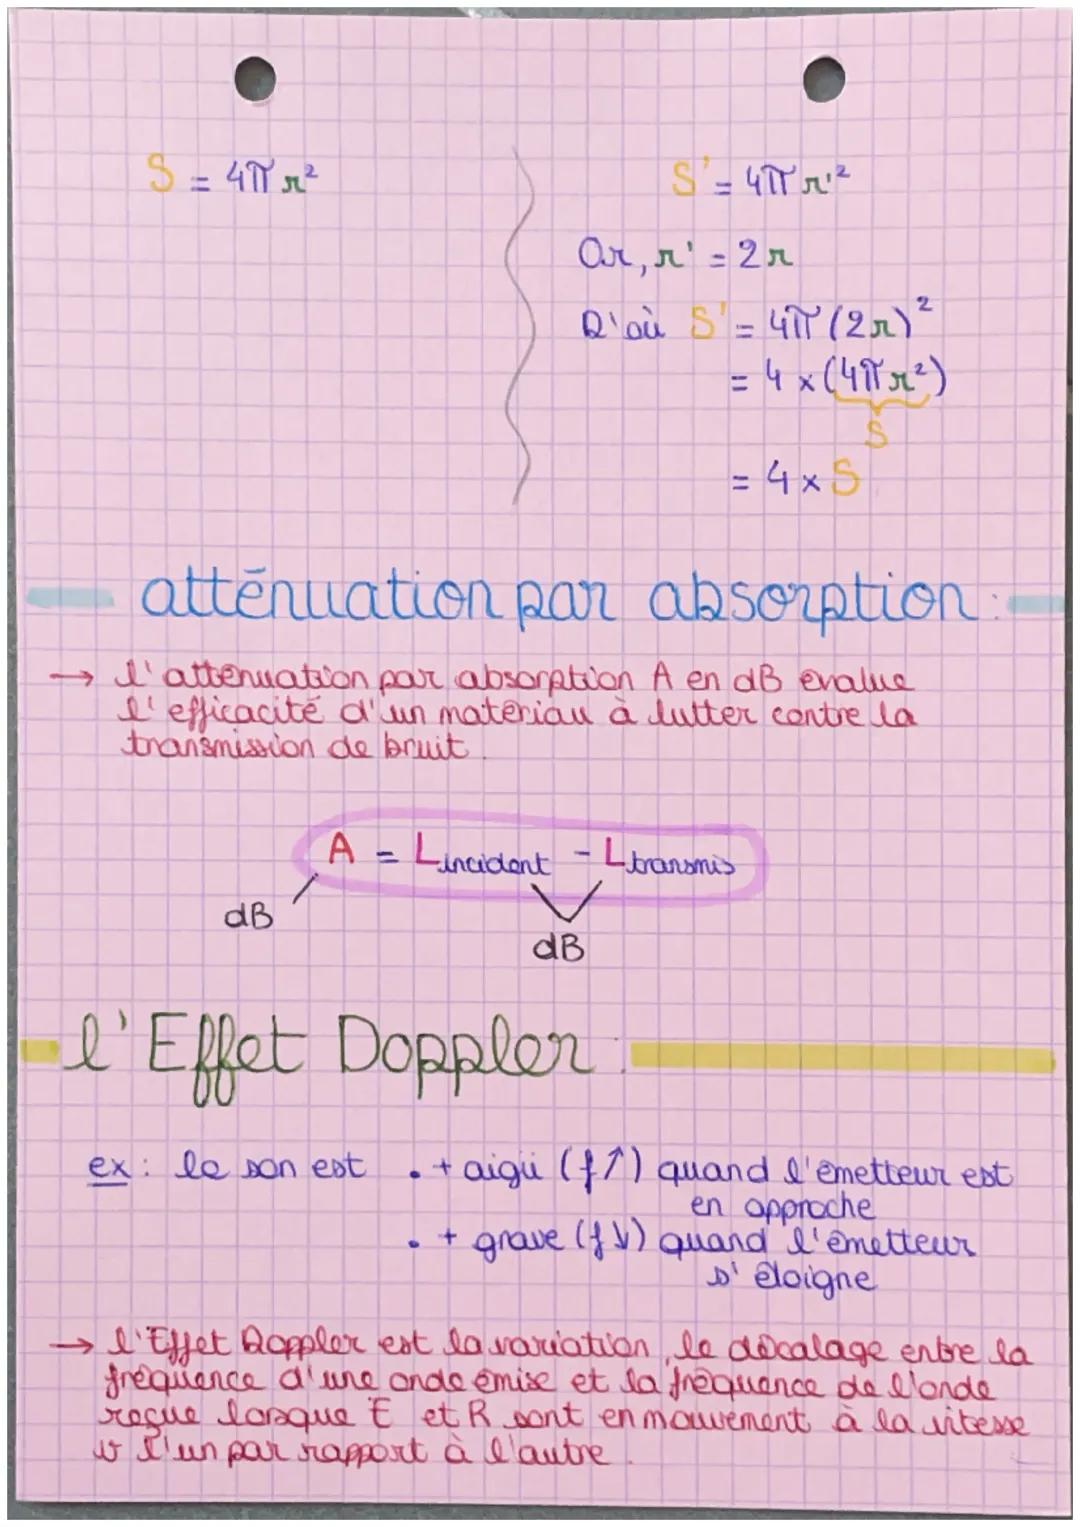 S = 4π r²
S' = 4π r'²
Or, r' = 2 r
D'où S' = 4π (2r)²
= 4 x (4π r²)
S
= 4 x S
atténuation par absorption :
→ l'atténuation par absorption A en dB évalue
l'efficacité d'un matériau à lutter contre la
transmission de bruit.
A = Lincident - Ltransmis
dB
dB
l'Effet Doppler :
ex : le son est . + aigü (f↑) quand l'émetteur est
en approche
. + grave (f↓) quand l'émetteur
s'éloigne
→ l'Effet Doppler est la variation, le décalage entre la
fréquence d'une onde émise et la fréquence de l'onde
reçue lorsque E et R sont en mouvement à la vitesse
v l'un par rapport à l'autre.